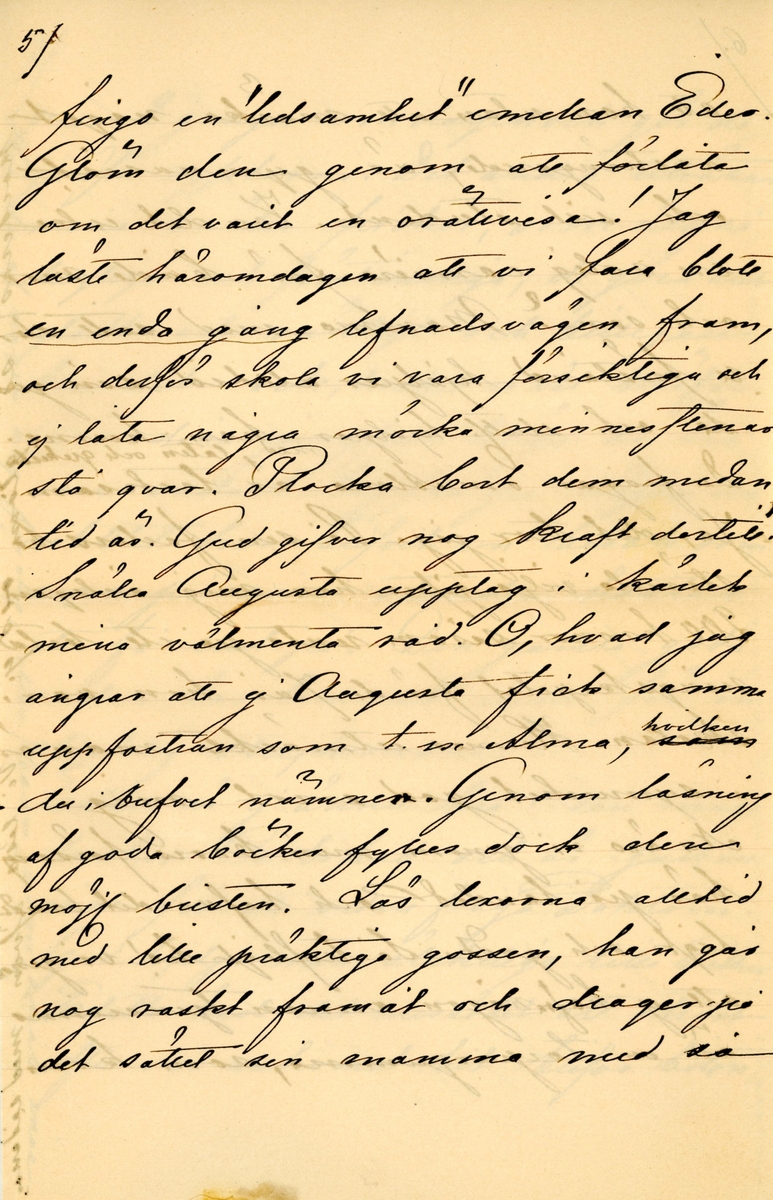 5/
fingo en "ledsamhet" emellan Eder.
Glöm den genom att förlåta
om det varit en orättvisa! Jag
läste häromdagen att vi fara blott
en enda gång lefnadsvägen fram,
och derför skola vi vara försiktiga och
ej låta några mörka minnesstenar
stå qvar. Plocka bort dem medan
tid är. Gud gifver nog kraft dertill.
Snälla Augusta upptag i kärlek
mina välmenta råd. O, hvad jag
ångrar att ej Augusta fick samma
uppfostran som t. ex Alma, hvilken
du i brefvet nämner. Genom läsning
af goda böcker fylles dock den
möjl bristen. Läs lexorna alltid
med lille präktige gossen, han går
nog raskt framåt och drager på
det sättet sin mamma med så